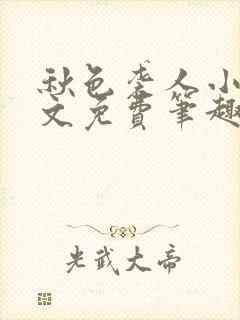 秋色袭人小
文免费笔趣
光武大帝